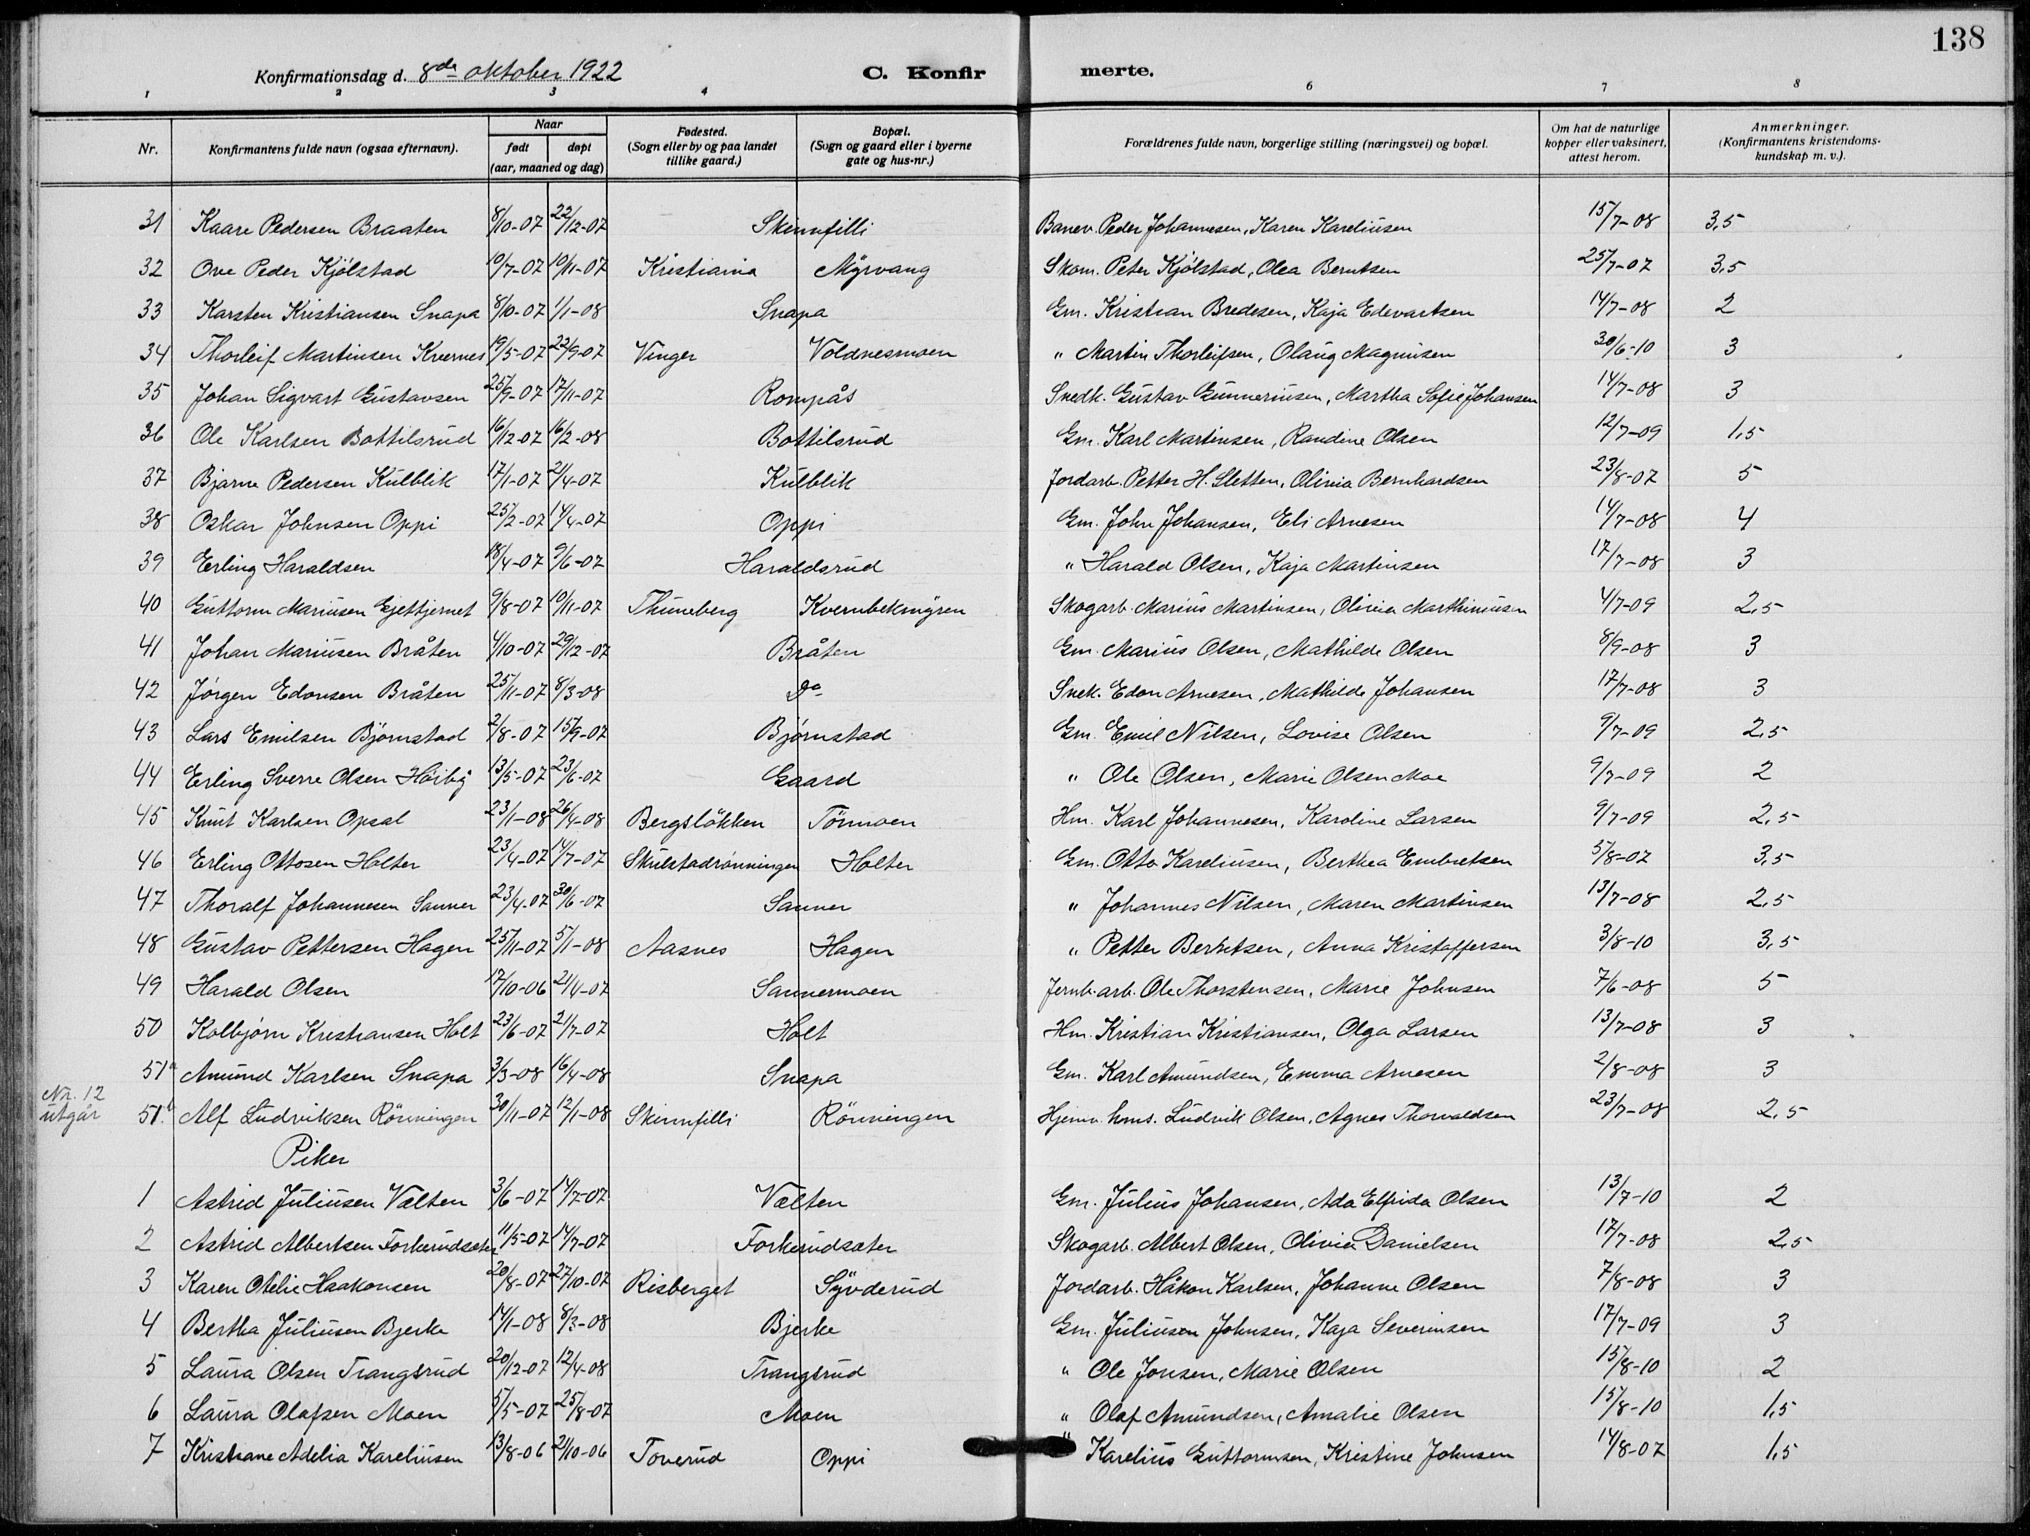 138
Konfirmationsdag d. 8de oktober 1922 C. Konfir merte.
1 2 3 4 6 7 8
Nr. Konfirmantens fulde navn (ogsaa efternavn). Naar født døpt (aar, maaned og dag) Fødested. (Sogn eller by og paa landet tillike gaard.) Bopæl. (Sogn og gaard eller i byerne gate og hus-nr.) Forældrenes fulde navn, borgerlige stilling (næringsvei) og bopæl. Om hat de naturlige kopper eller vaksinert, attest herom. Anmerkninger. (Konfirmantens kristendoms-kundskap m. v.).
31 Kaare Pedersen Braaten 8/10-07 22/12-07 Skinnfilli Banev. Peder Johannesen, Karen Kareliusen 15/7-08 3,5
32 Ove Peder Kjölstad 10/7-07 10/11-07 Kristiania Myrvang Skom. Peter Kjölstad, Olea Berntsen 25/7-07 3,5
33 Karsten Kristiansen Snapa 8/10-07 1/1-08 Snapa Gm. Kristian Bredesen, Kaja Edevartsen 14/7-08 2
34 Thorleif Martinsen Kvernes 19/5-07 22/9-07 Vinger Voldnesmoen " Martin Thorleifsen, Olaug Magnusen 30/6-10 3
35 Johan Sigvart Gustavsen 25/9-07 17/11-07 Rompås Snedk. Gustav Gunneriusen, Martha Sofie Johansen 14/7-08 3
36 Ole Karlsen Bottilsrud 16/12-07 16/2-08 Bottilsrud Gm. Karl Martinsen, Randine Olsen 12/7-09 1,5
37 Bjarne Pedersen Kulblik 17/1-07 2/4-07 Kulblik Jordarb. Petter H. Sletten, Olivia Bernhardsen 23/8-07 5
38 Oskar Johnsen Oppi 25/2-07 14/4-07 Oppi Gm. John Johansen, Eli Arnesen 14/7-08 4
39 Erling Haraldsen 18/4-07 9/6-07 Haraldsrud " Harald Olsen, Kaja Martinsen 17/7-08 3
40 Guttorm Mariusen Gjettjernet 9/8-07 10/11-07 Thuneberg Kvernbekmyren Skogarb. Marius Martinsen, Olivia Marthiniusen 4/7-09 2,5
41 Johan Mariusen Bråten 4/10-07 29/12-07 Bråten Gm. Marius Olsen, Mathilde Olsen 8/9-08 3
42 Jørgen Edonsen Bråten 25/11-07 8/3-08 Do Snek. Edon Arnesen, Mathilde Johansen 17/7-08 3
43 Lars Emilsen Björnstad 2/8-07 15/9-07 Bjørnstad Gm. Emil Nilsen, Lovise Olsen 9/7-09 2,5
44 Erling Sverre Olsen Höiby 13/5-07 23/6-07 Gaard " Ole Olsen, Marie Olsen Moe 9/7-09 2
45 Knut Karlsen Opsal 23/1-08 26/4-08 Bergslökken Tönmoen Hm. Karl Johannesen, Karoline Larsen 9/7-09 2,5
46 Erling Ottosen Holter 23/4-07 14/7-07 Skulstadrønningen Holter Gm. Otto Kareliusen, Berthea Embretsen 5/8-07 3,5
47 Thoralf Johannesen Sanner 23/4-07 30/6-07 Sanner " Johannes Nilsen, Maren Martinsen 13/7-08 2,5
48 Gustav Pettersen Hagen 25/11-07 5/1-08 Aasnes Hagen " Petter Berntsen, Anna Kristoffersen 3/8-10 3,5
49 Harald Olsen 17/10-06 21/4-07 Sannermoen Jernb.arb. Ole Thorstensen, Marie Johnsen 7/6-08 5
50 Kolbjørn Kristiansen Holt 23/6-07 21/7-07 Holt Hm. Kristian Kristiansen, Olga Larsen 13/7-08 3
51a Amund Karlsen Snapa 3/3-08 16/4-08 Snapa Gm. Karl Amundsen, Emma Arnesen 2/8-08 3
Nr. 12 utgår 51b. Alf Ludviksen Rönningen 30/11-07 12/1-08 Skinnfilli Rönningen Hjemv. hms. Ludvik Olsen, Agnes Thorvaldsen 23/7-08 2,5
Piker
1 Astrid Juliusen Vælten 3/6-07 14/7-07 Vælten Gm. Julius Johansen, Ada Elfrida Olsen 13/7-10 2
2 Astrid Albertsen Forkerudsæter 11/5-07 14/7-07 Forkerudsæter Skogarb. Albert Olsen, Olivia Danielsen 17/7-08 2,5
3 Karen Otelie Haakonsen 20/8-07 27/10-07 Risberget Syvderud Jordarb. Håkon Karlsen, Johanne Olsen 7/8-08 3
4 Bertha Juliusen Bjerke 14/1-08 8/3-08 Bjerke Gm. Juliusen Johnsen, Kaja Severinsen 17/7-09 3
5 Laura Olsen Trangsrud 20/12-07 12/4-08 Trangsrud " Ole Jonsen, Marie Olsen 15/8-10 2
6 Laura Olafsen Moen 5/5-07 25/8-07 Moen " Olaf Amundsen, Amalie Olsen 15/8-10 1,5
7 Kristiane Adelia Kareliusen 13/8-06 21/10-06 Toverud Oppi " Karelius Guttormsen, Kristine Johnsen 14/8-07 1,5